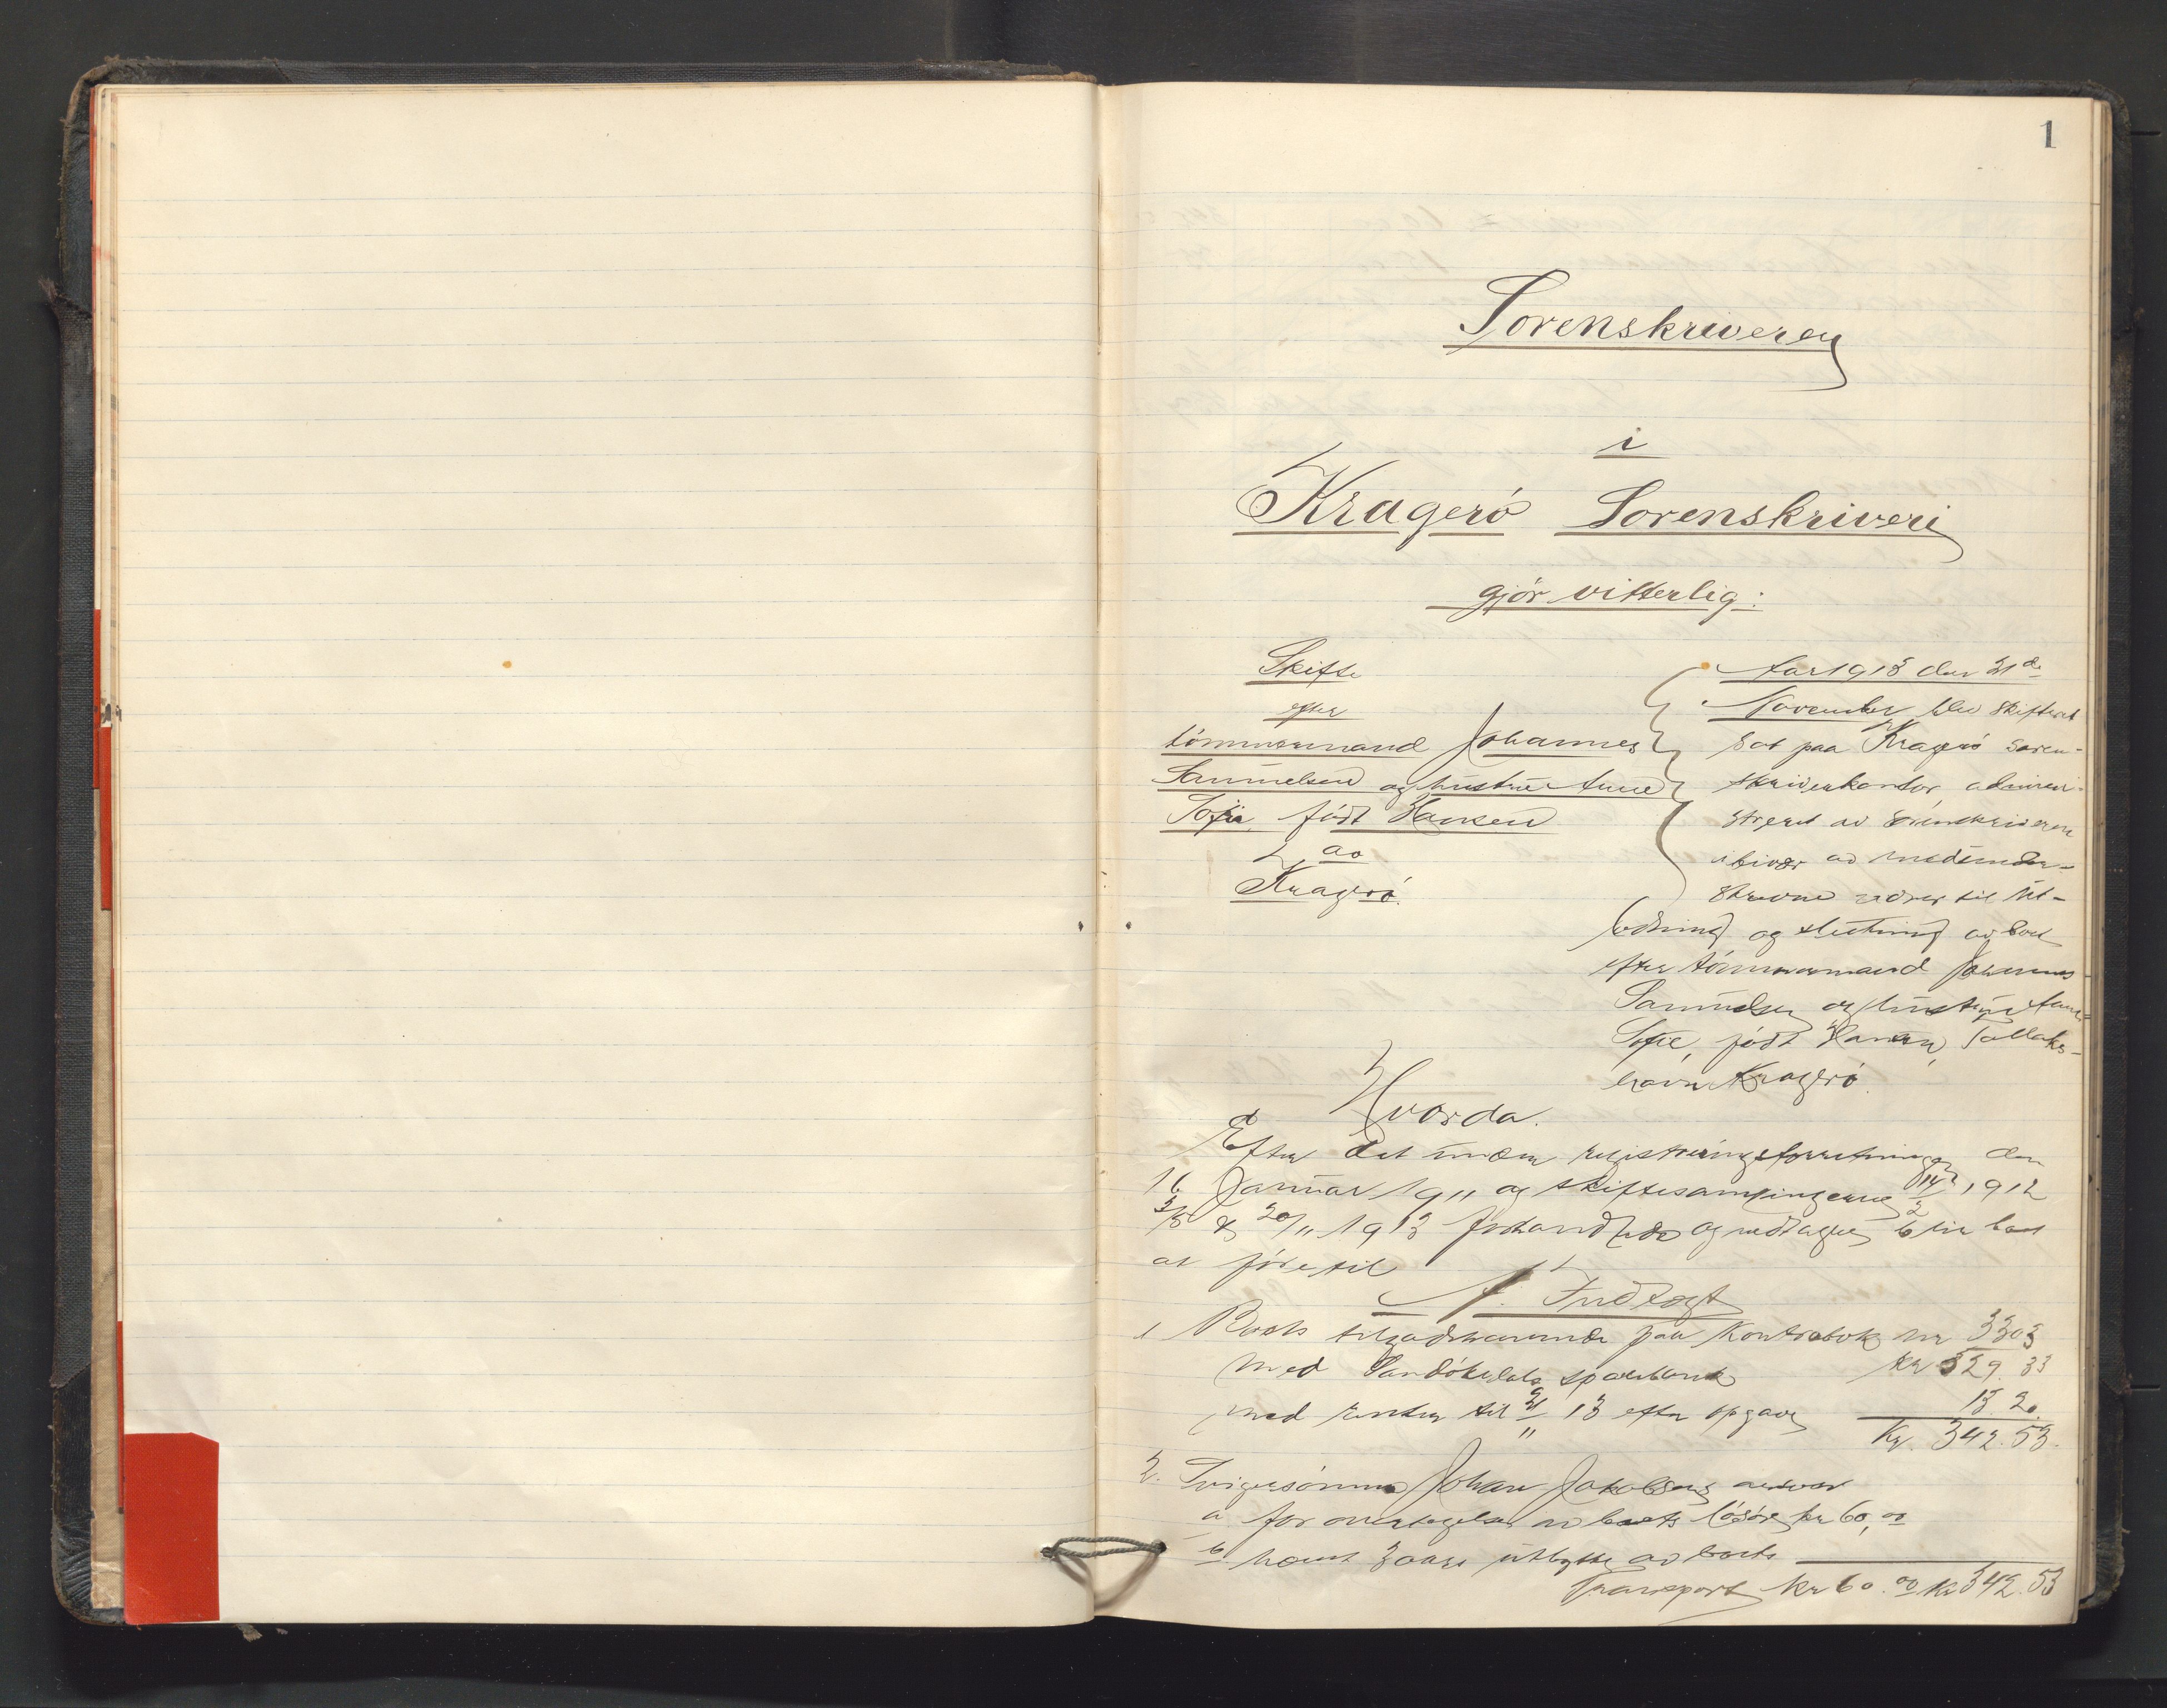 1
Sorenskriveren
i
Kragerö Sorenskriveri
gjör vitterlig:
Skifte
efter
tömmermand Johannes
Samuelsen og hustru Anne
Sofie, födt Hansen
av
Kragerö.
Aar 1913 den 21de
November blev skifteret
sat paa Kragerö soren-
skriverkontor admini-
streret av sorenskriveren
i bivær av medunder-
skrevne vidner til ut-
lodning og slutning av boet
efter tömmermand Johannes
Samuelsen og hustru Anne
Sofie, födt Hansen, Tallaks-
havn Kragerö.
Hvorda.
Efter det under registreringsforretningen den
16 Januar 1911 og skiftesamlingerne 1912
20/11 1913 forhandlede og vedtagne blir boet
at före til
A. Indtægt
1 Boets tilgodehavende paa Kontrabok nr 3303
med Sandökedals sparebank kr 329.33
med renter til 21/11 13 efter opgave 13.20.
Kr. 342.53.
2. Svigersönnen Johan Jakobsens ansvar
a for overtagelse av boets lösöre kr 60,00
b 3 aars utbytte av boets
Transport kr 60.00 kr 342.53